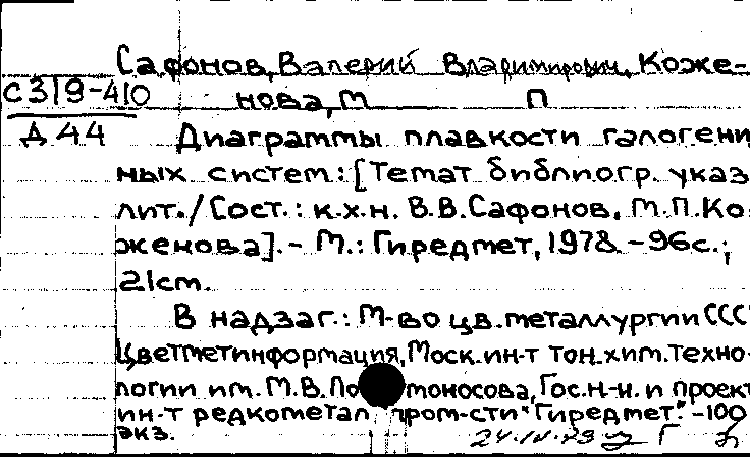 Сафонов, Валерий Владимирович, Коже-
С319-410 нова, М П
Д 44 Диаграммы плавкости галогенид
ных систем: [Темат библиогр. указ
лит. / Сост.: к.х.н. В.В. Сафонов, М.П. Ко
женова]. - М.: Гиредмет, 1978. - 96с.;
21см.
В надзаг.: М-во цв. металлургии СССР
Цветметинформация, Моск. ин-т тон. хим. техно-
логии им. М.В. Ломоносова, Гос. н-и. и проект
ин-т редкометал пром-сти "Гиредмет". -100
экз.